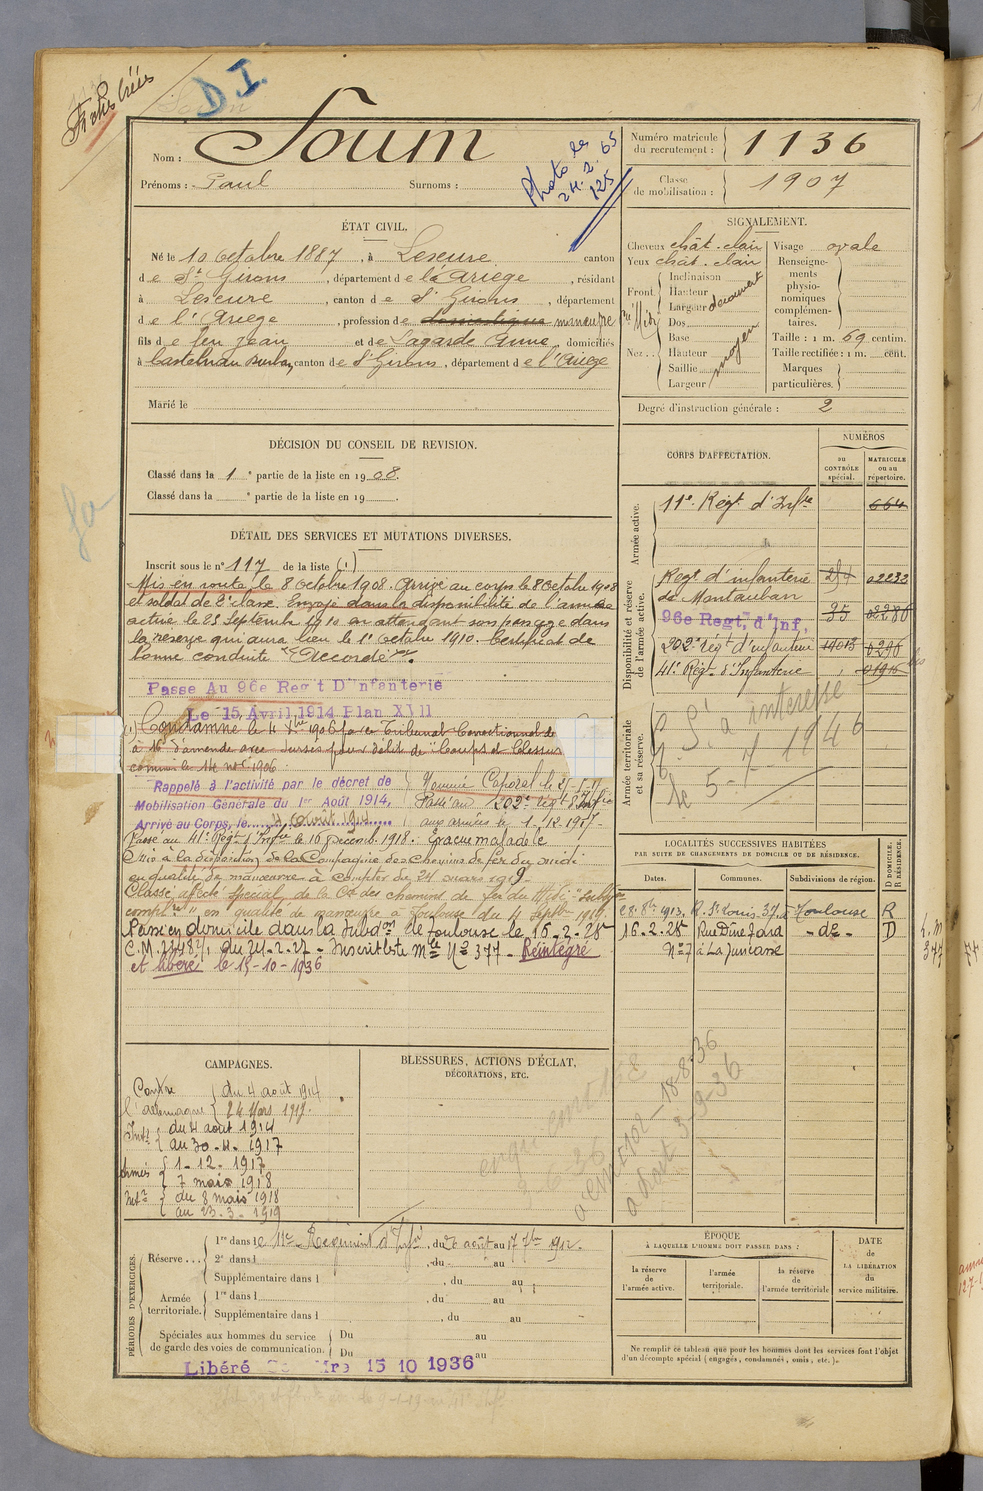 Fiches créées
D I.
Nom : Soum
Prénoms : Paul Surnoms :
Photo le
24.2.65
125
Numéro matricule
du recrutement : 1136
Classe
de mobilisation : 1907
ÉTAT CIVIL.
Né le 10 Octobre 1887, à Lescure, canton
de St Girons, département de l'Ariège, résidant
à Lescure, canton de St Girons, département
de l'Ariège, profession de domestique manœuvre
fils de feu Jean et de Lagarde Anne, domiciliés
à Castelnau Durban, canton de St Girons, département de l'Ariège
Marié le
SIGNALEMENT.
Cheveux chât-clair
Yeux chât-clair
Front. Inclinaison
Hauteur
Largeur découvert
Nez. Dos
Base
Hauteur moyen
Saillie
Largeur
Visage ovale
Renseigne-
ments
physio-
nomiques
complémen-
taires.
Taille : 1 m. 69 centim.
Taille rectifiée : 1 m. cent.
Marques
particulières.
Degré d'instruction générale : 2
DÉCISION DU CONSEIL DE REVISION.
Classé dans la 1e partie de la liste en 1908.
Classé dans la e partie de la liste en 19 .
DÉTAIL DES SERVICES ET MUTATIONS DIVERSES.
Inscrit sous le n° 117 de la liste (1)
Mis en route le 8 octobre 1908. Arrivé au corps le 8 octobre 1908
et soldat de 2e classe. Envoyé dans la disponibilité de l'armée
active le 25 Septembre 1910 en attendant son passage dans
la réserve qui aura lieu le 1er Octobre 1910. Certificat de
bonne conduite "Accordé".
Passe Au 96e Reg't D'Infanterie
Le 15 Avril 1914 Plan XVII
(1) Condamné le 4 Xbre 1906 par le Tribunal Correctionnel de
à 16f d'amende avec sursis pour délit de "Coups et Blessures"
commis le 14 novbre 1906
Rappelé à l'activité par le décret de
Mobilisation Générale du 1er Août 1914,
Arrivé au Corps, le 4 Août 1914
Nommé Caporal le
Passé au 202e régt d'Infie
aux armées le 1-12-1917
Passé au 41e Régt d'Infie le 16 Décemb. 1918. Évacué malade le
Mis à la disposition de la Compagnie des Chemins de fer du midi
en qualité de manœuvre à compter du 24 mars 1919
Classé affecté spécial de la Cie des chemins de fer du Midi "Subdon
complre" en qualité de manœuvre à Toulouse du 4 Septbre 1919.
Passé en domicile dans la Subdon de Toulouse le 16-2-28
C.M. 23482/1 du 24-2-27 - Inscrit liste mle No 377 - Réintégré
et libéré le 15-10-1936
CORPS D'AFFECTATION.
NUMÉROS
au
CONTRÔLE
spécial.
MATRICULE
ou au
répertoire.
Armée active.
11e Régt d'Infie 664
Disponibilité et réserve
de l'armée active.
Régt d'infanterie 02232
de Montauban 35
96e Regt, d'Inf,
202e régt d'infanterie 19013
41e Régt d'Infanterie
Armée territoriale
et sa réserve.
S. à intéressé
le 5-7-1946
LOCALITÉS SUCCESSIVES HABITÉES
PAR SUITE DE CHANGEMENTS DE DOMICILE OU DE RÉSIDENCE.
Dates. Communes. Subdivisions de région.
D DOMICILE,
R RÉSIDENCE.
28.8bre 1913. R. St Louis 37. Toulouse R
16-2-28 Rue Dine fard -de- D
No 7 à La Juncasse
L.M
377
CAMPAGNES.
Contre
l'allemagne du 4 août 1914
24 Mars 1919.
Intr du 4 août 1914
au 30-11-1917
Armées 1-12-1917
7 mars 1918
Intr du 8 mars 1918
au 23-3-1919
BLESSURES, ACTIONS D'ÉCLAT,
DÉCORATIONS, ETC.
18-8-36
a droit 3-9-36
PÉRIODES D'EXERCICES.
Réserve... 1re dans le 11e Régiment d'Infie, du 26 août au 17 7bre 1912.
2e dans l , du au
Supplémentaire dans l , du au
Armée
territoriale. 1re dans l , du au
Supplémentaire dans l , du au
Spéciales aux hommes du service
de garde des voies de communication. Du au
Du au
Libéré 15 10 1936
ÉPOQUE
À LAQUELLE L'HOMME DOIT PASSER DANS :
la réserve
de
l'armée active.
l'armée
territoriale.
la réserve
de
l'armée territoriale
DATE
de
LA LIBÉRATION
du
service militaire.
Ne remplir ce tableau que pour les hommes dont les services font l'objet
d'un décompte spécial (engagés, condamnés, omis, etc.).